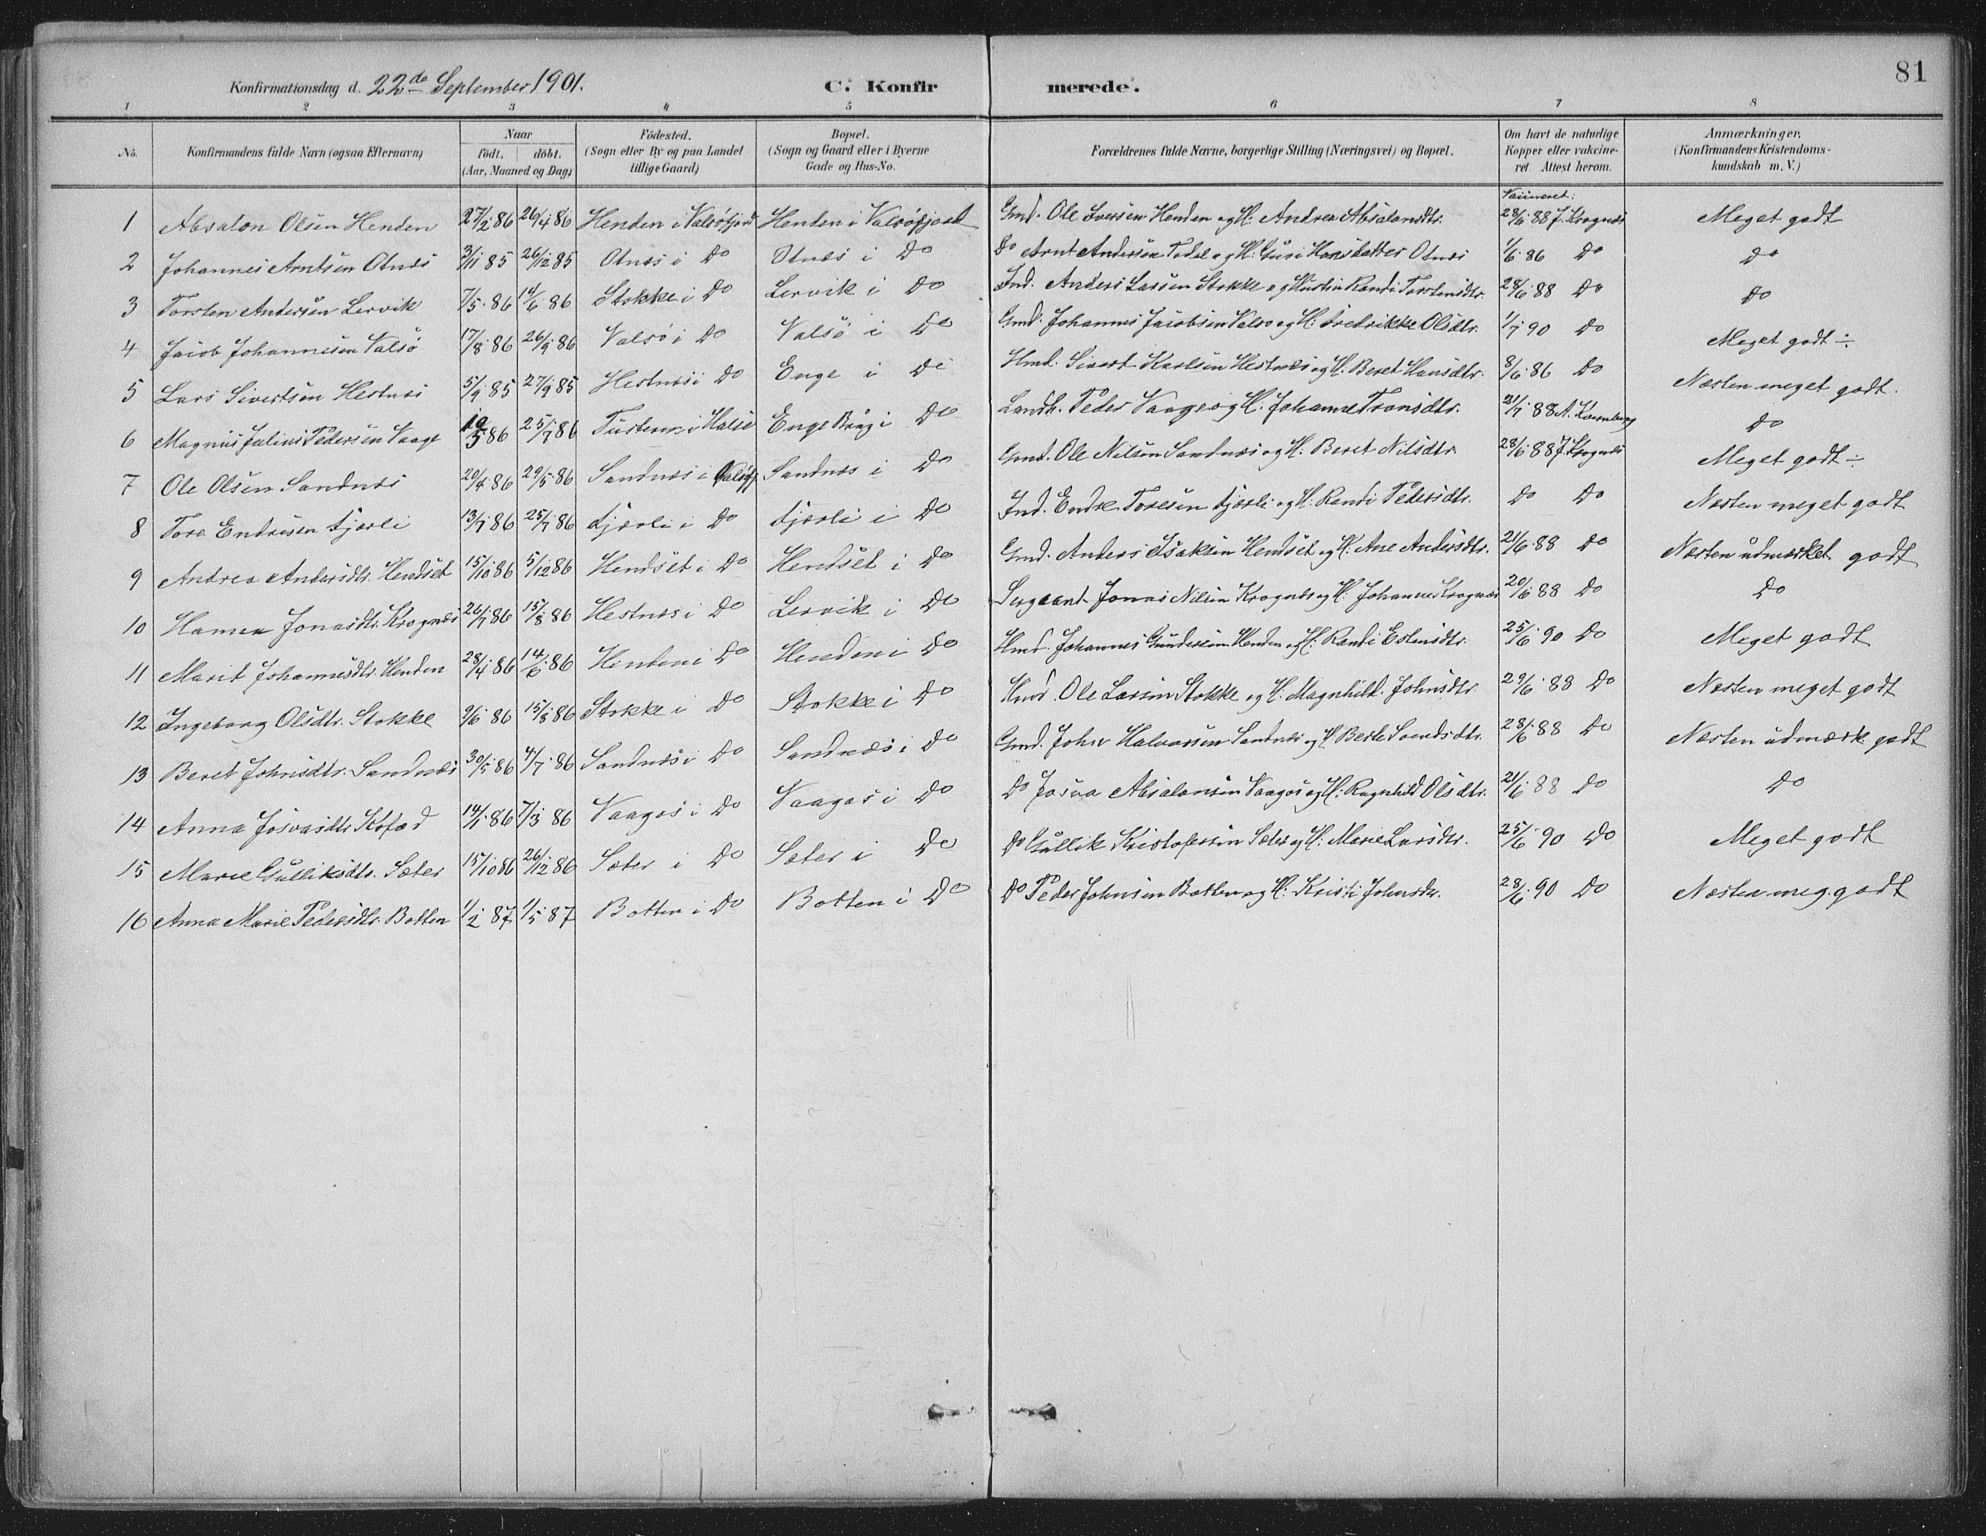 81
Konfirmationsdag d. 22de September 1901. C. Konfirmerede.
1 2 3 4 5 6 7 8
No. Konfirmandens fulde Navn (ogsaa Efternavn) Naar født. døbt. (Aar, Maaned og Dag) Fødested. (Sogn eller By og paa Landet tillige Gaard) Bopæl. (Sogn og Gaard eller i Byerne Gade og Hus-No. Forældrenes fulde Navne, borgerlige Stilling (Næringsvei) og Bopæl. Om havt de naturlige Kopper eller vakcineret. Attest herom. Anmærkninger. (Konfirmandens Kristendomskundskab m. V.)
1 Absalon Olsen Henden 27/2 86 26/4 86 Henden i Valsøfjord Henden i Valsøfjord Gmd. Ole Iversen Henden og H: Andrea Absalonsdtr. 28/6 88 J. Krognes Meget godt
2 Johannes Arntsen Otnes 3/11 85 26/12 85 Otnes i Do Otnes i Do Do Arnt Andersen Otnes 1/6 86 Do Do
3 Torsten Andersen Lervik 7/5 86 14/6 86 Stokke i Do Lervik i Do Ind. Anders Larsen Stokke og Hustru Randi Torstensdtr. 28/6 88 Do Do
4 Jacob Johannesen Valsø 17/8 86 26/9 86 Valsø i Do Valsø i Do Gmd. Johannes Jacobsen Valsø og H: Fredrikke Olsdtr. 1/7 90 Do Meget godt ÷
5 Lars Sivertsen Hestnes 5/9 85 27/9 85 Hestnes i Do Enge i Do Hmd. Sivert Karlsen Hestnes og H: Beret Hansdtr. 8/6 86 Do Næsten meget godt.
6 Magnus Julius Pedersen Vaage 10/5 86 25/7 86 i Halse Enge i Do Landh. Peder Vaage og H: Johanne Tronsdtr. 21/7 88 Do
7 Ole Olsen Sandnes 20/4 86 29/5 86 Sandnes i Valsøfj Sandnes i Do Gmd. Ole Nilsen Sandnes og H: Beret Nilsdtr. 28/6 88 J. Krognes Meget godt ÷
8 Tore Endresen Fjærli 13/7 86 25/7 86 Fjærli i Do Fjærli i Do Ind. Endre Toresen Fjærli og H: Randi Pedersdtr. Do Do Næsten meget godt
9 Andrea Andersdtr. Hendset 15/10 86 5/12 86 Hendset i Do Hendset i Do Gmd. Anders Isaksen Hendset og H: Ane Andersdtr. 21/6 88 Do Næsten udmærket godt
10 Hanna Jonasdtr. Krognes 26/7 86 15/8 86 Hestnes i Do Lervik i Do Sergeant Jonas Nilsen Krognes og H: Johanne Krognes 20/6 88 Do Do
11 Marit Johannesdtr. Henden 28/4 86 14/6 86 Henden i Do Henden i Do Hmd. Johannes Gundersen Henden og H: Randi Estensdtr. 25/6 90 Do Meget godt
12 Ingeborg Olsdtr. Stokke 9/6 86 15/8 86 Stokke i Do Stokke i Do Hmd. Ole Larsen Stokke og H: Magnhild Johnsdtr 29/6 88 Do Næsten meget godt
13 Beret Johnsdtr. Sandnes 30/5 86 4/7 86 Sandnes i Do Sandnes i Do Gmd. John Halvorsen Sandnes og H: Berte Svendsdtr. 28/6 88 Do Næsten udmærk. godt
14 Anna Josvasdtr. 14/1 86 7/3 86 Vaagos i Do Vaagos i Do Do Josva Absalonsen Vaagos og H: Ragnhild Olsdtr. 21/6 88 Do Do
15 Marie Gulliksdtr. Sæter 15/10 86 26/12 86 Sæter i Do Sæter i Do Do Gullik Kristofersen Sæter og H: Marie Larsdtr. 25/6 90 Do Meget godt
16 Anna Marie Pedersdtr. Botten 1/2 87 1/5 87 Botten i Do Botten i Do Do Peder Johnsen Botten og H: Kristi Johnsdtr. 28/6 90 Do Næsten meg. godt